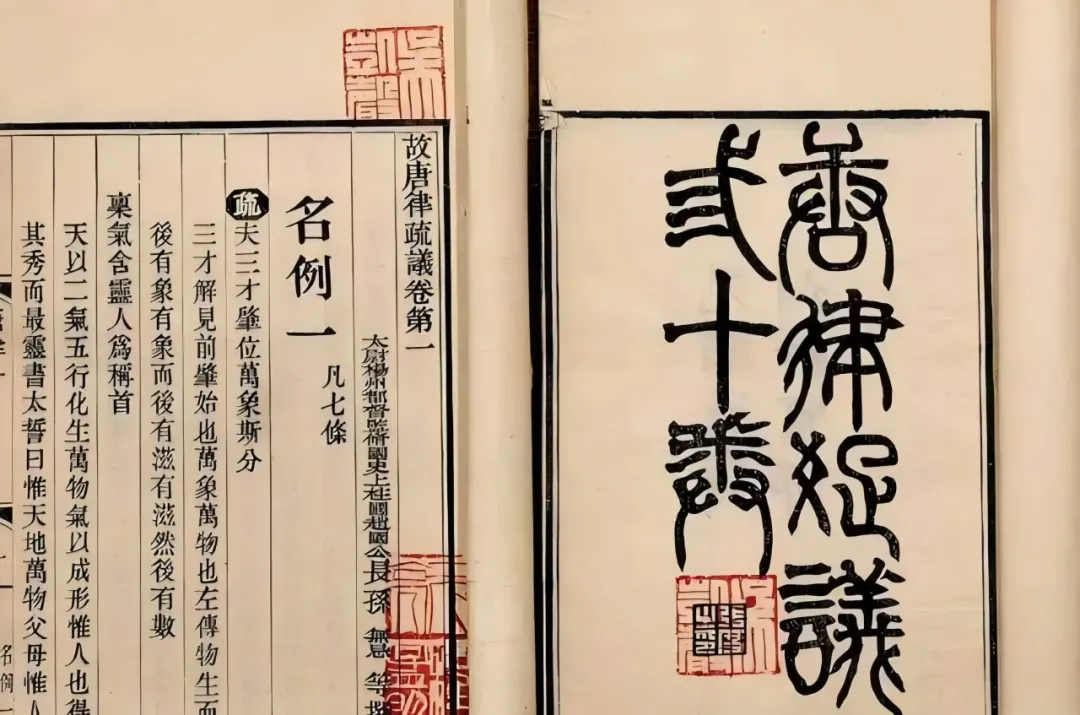 唐律疏議
弎十卷
吳凱聲
吳凱聲
故唐律疏議卷第一
太尉揚州都督監脩國史上柱國趙國公長孫無忌等撰
名例一 凡七條
疏夫三才肇位萬象斯分
三才解見前肇始也萬象萬物也左傳物生而
後有象有象而後有滋有滋然後有數
稟氣含靈人爲稱首
天以二氣五行化生萬物氣以成形惟人也得
其秀而最靈書太誓曰惟天地萬物父母惟人
名例一